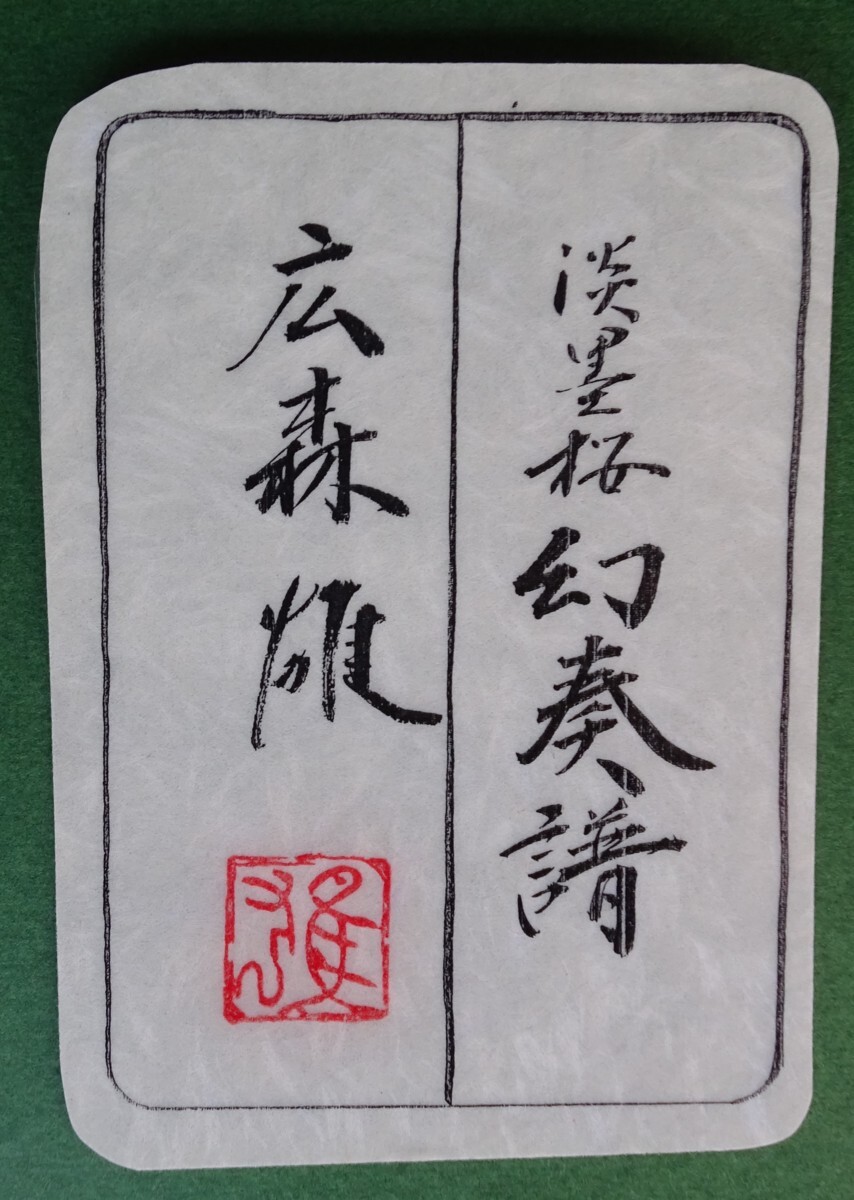 淡墨桜幻奏譜
広森雄
雄